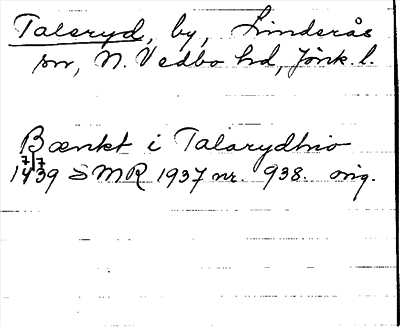 Talaryd, by, Linderås
sn, N. Vedbo hd, Jönk. l.
Bænkt i Talarydhio
7/7
1439 SMR 1937 nr. 938. orig.